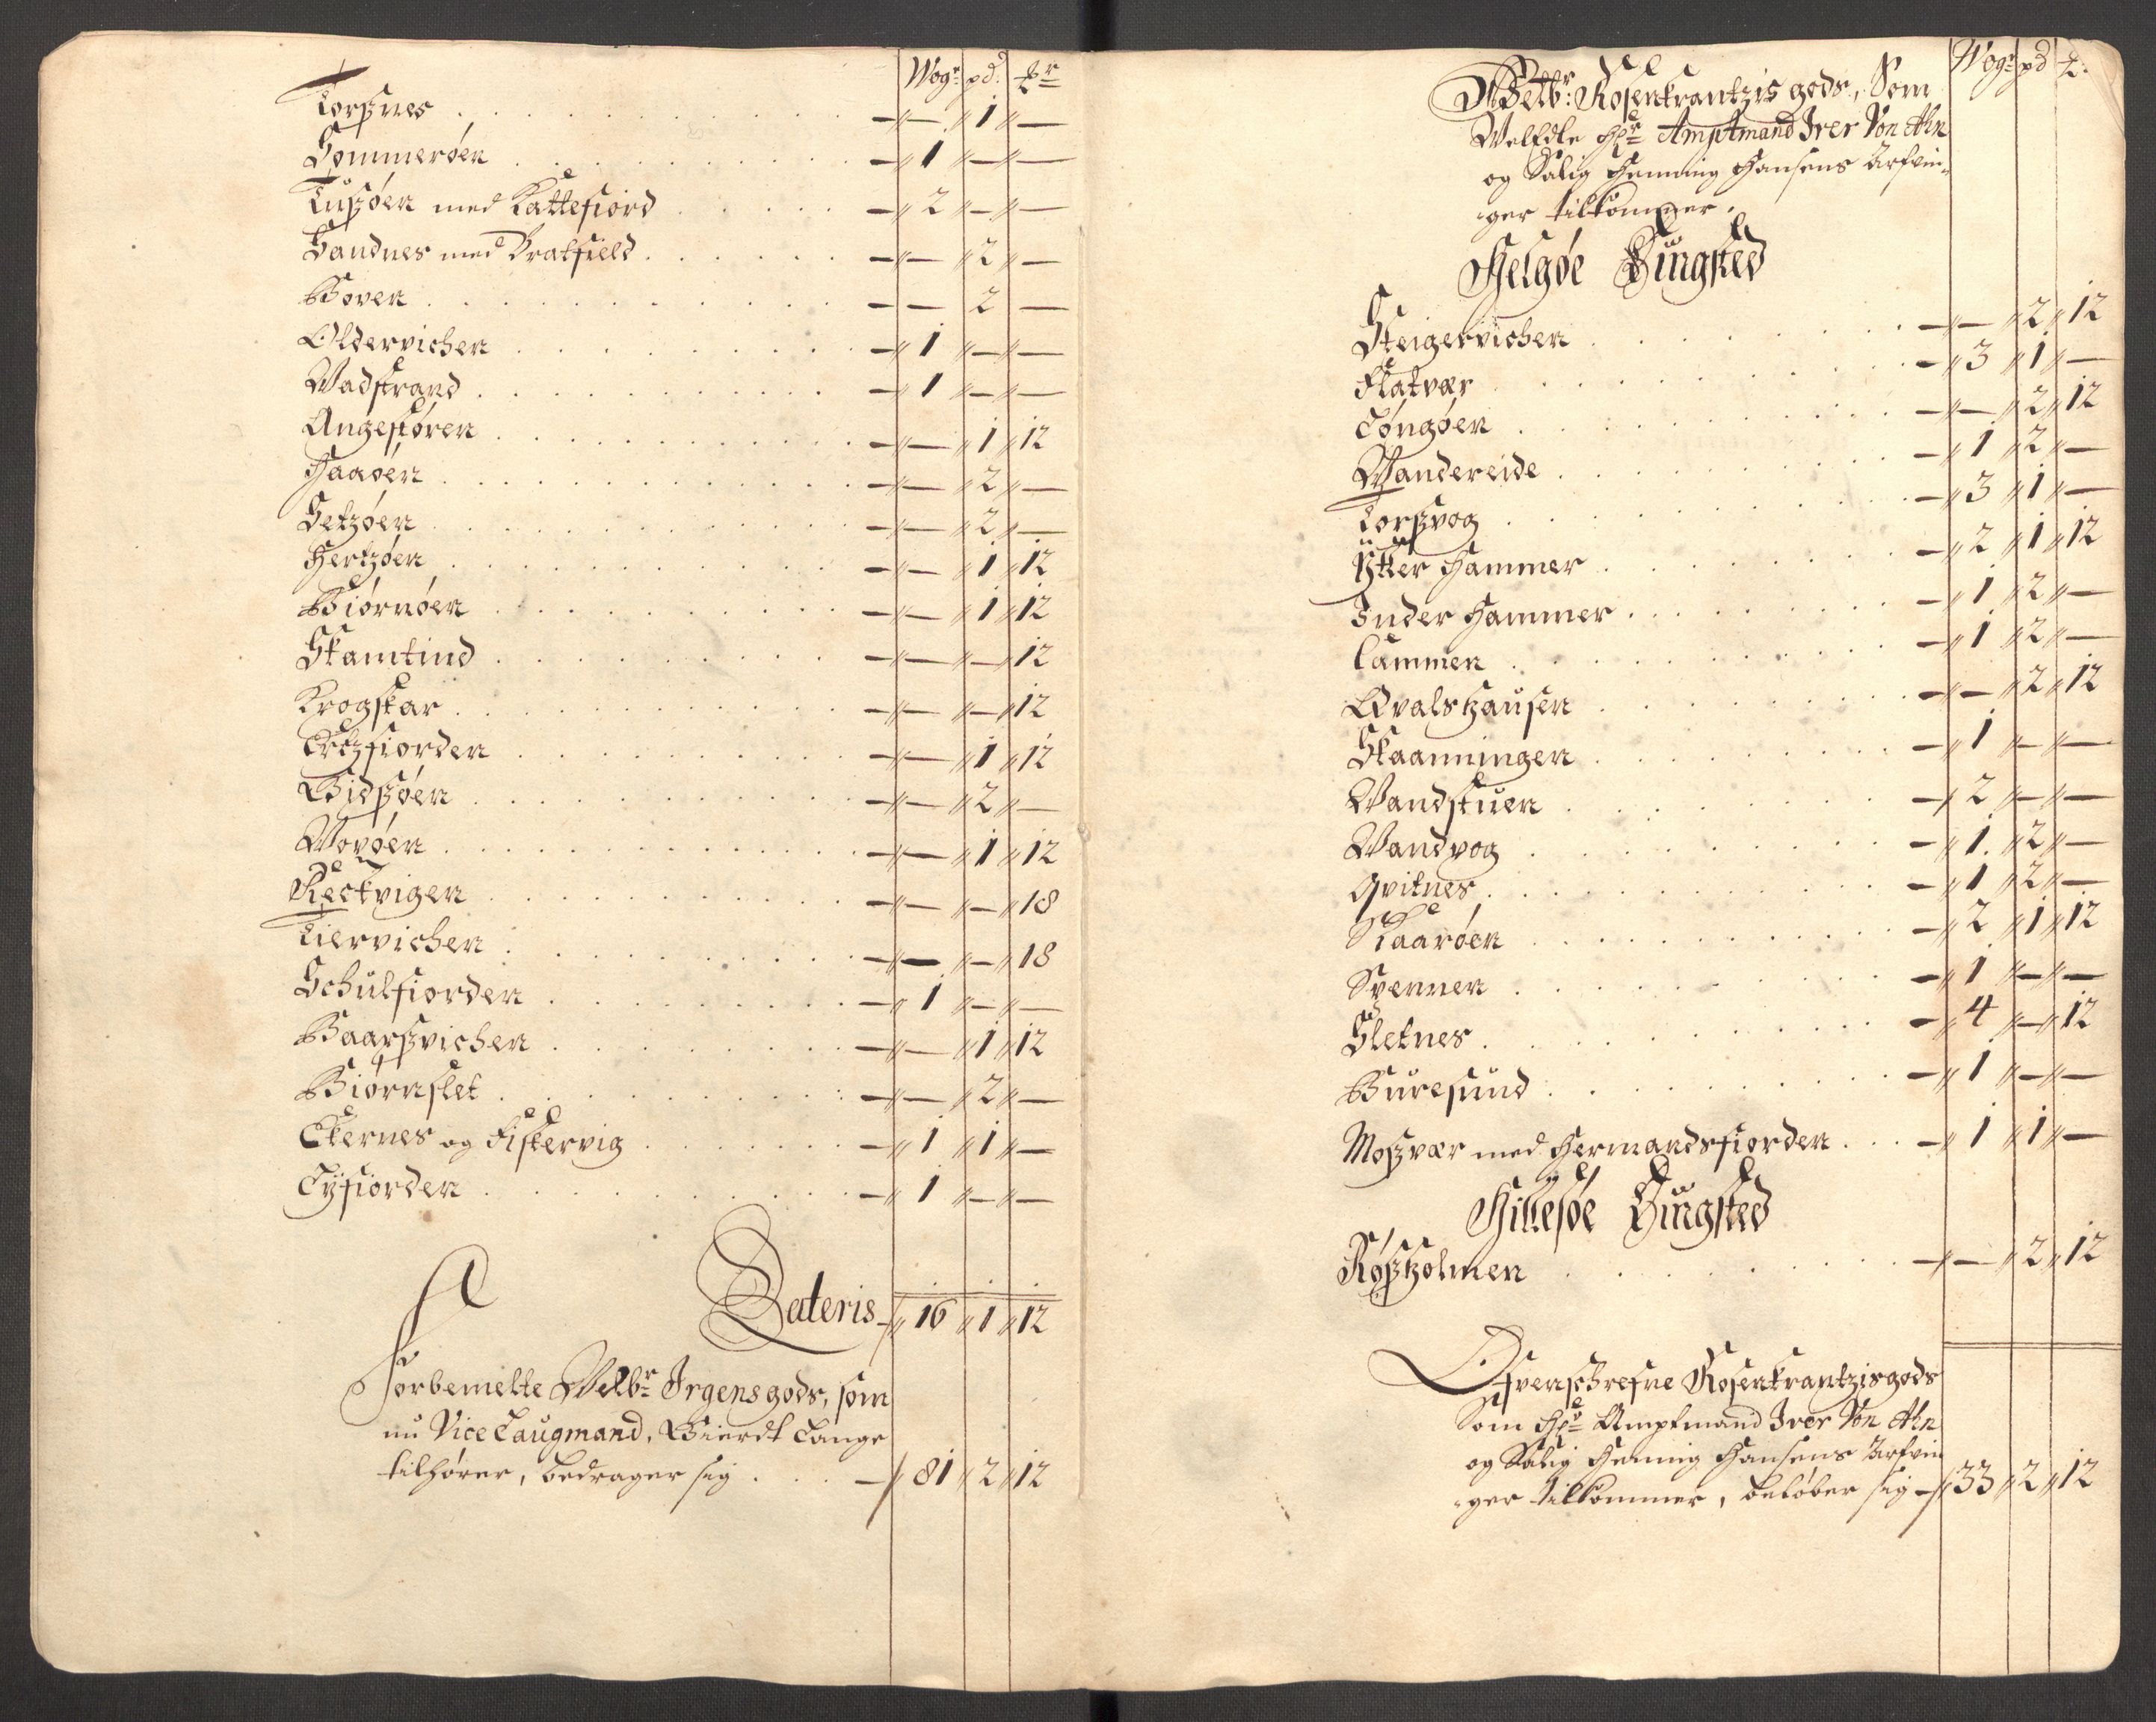 Wogr pd. 
Torsnes — — 1 —
Sommerøen — 1 — —
Tusøen med Kattefiord — 2 — —
Sandnes med Kratfield — — 2 —
Boven — — 2 —
Oldervichen — 1 — —
Vadstrand — 1 — —
Angestøren — — 1 12
Haaøen — — 2 —
Setzøen — — 2 —
Hertzøen — — 1 12
Biørnøen — — 1 12
Skamtind — — — 12
Krogskar — — — 12
Ertzfiorden — — 1 12
Gidsøen — — 2 —
Vovøen — — 1 12
Reckvigen — — — 18
Tiervichen — — — 18
Schulfiorden — 1 — —
Baarsvichen — — 1 12
Biørnslet — — 2 —
Ekernes og Fiskervig — 1 1 —
Lyfiorden — 1 — —
Lateris — 16 1 12
Forbemelte Velbr. Irgens gods, som
nu Vice Laugmand, Gierdt Lange
tilhører, bedrager sig — 81 2 12
Wogr pd
Velbr. Rosenkrantzis gods, Som
Welædle Hr. Amptmand Iver Von Ahn
og Salig Henning Hansens Arfvin-
ger tilkommer.
Helgøe Tingsted
Steigervichen — — 2 12
Flatvær — 3 1 —
Løngøen — — 2 12
Vandereide — 1 2 —
Torsvog — 3 1 —
Ytter Hammer — 2 1 12
Inder Hammer — 1 2 —
Lammen — 1 2 —
Qvalshausen — — 2 12
Skaanningen — 1 — —
Vandstuen — 2 — —
Vandvog — 1 2 —
Qvitnes — 1 2 —
Kaarøen — 2 1 12
Spennen — 1 — —
Sletnes — 4 — 12
Buresund — 1 — —
Mosvær med Hermandsfiorden — 1 1 —
Hillesøe Tingsted
Røsholmen — — 2 12
Ofvenschrefne Rosenkrantzis gods
Som Hr. Amptmand Iver Von Ahn
og Salig Henning Hansens Arfvin
ger tilkommer, beløber sig — 33 2 12